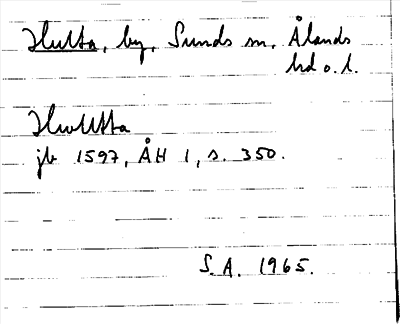 Hulta, by, Sunds sn, Ålands
hd o. l.
Hwltta
jb 1597, ÅH 1, s. 350.
S.A. 1965.